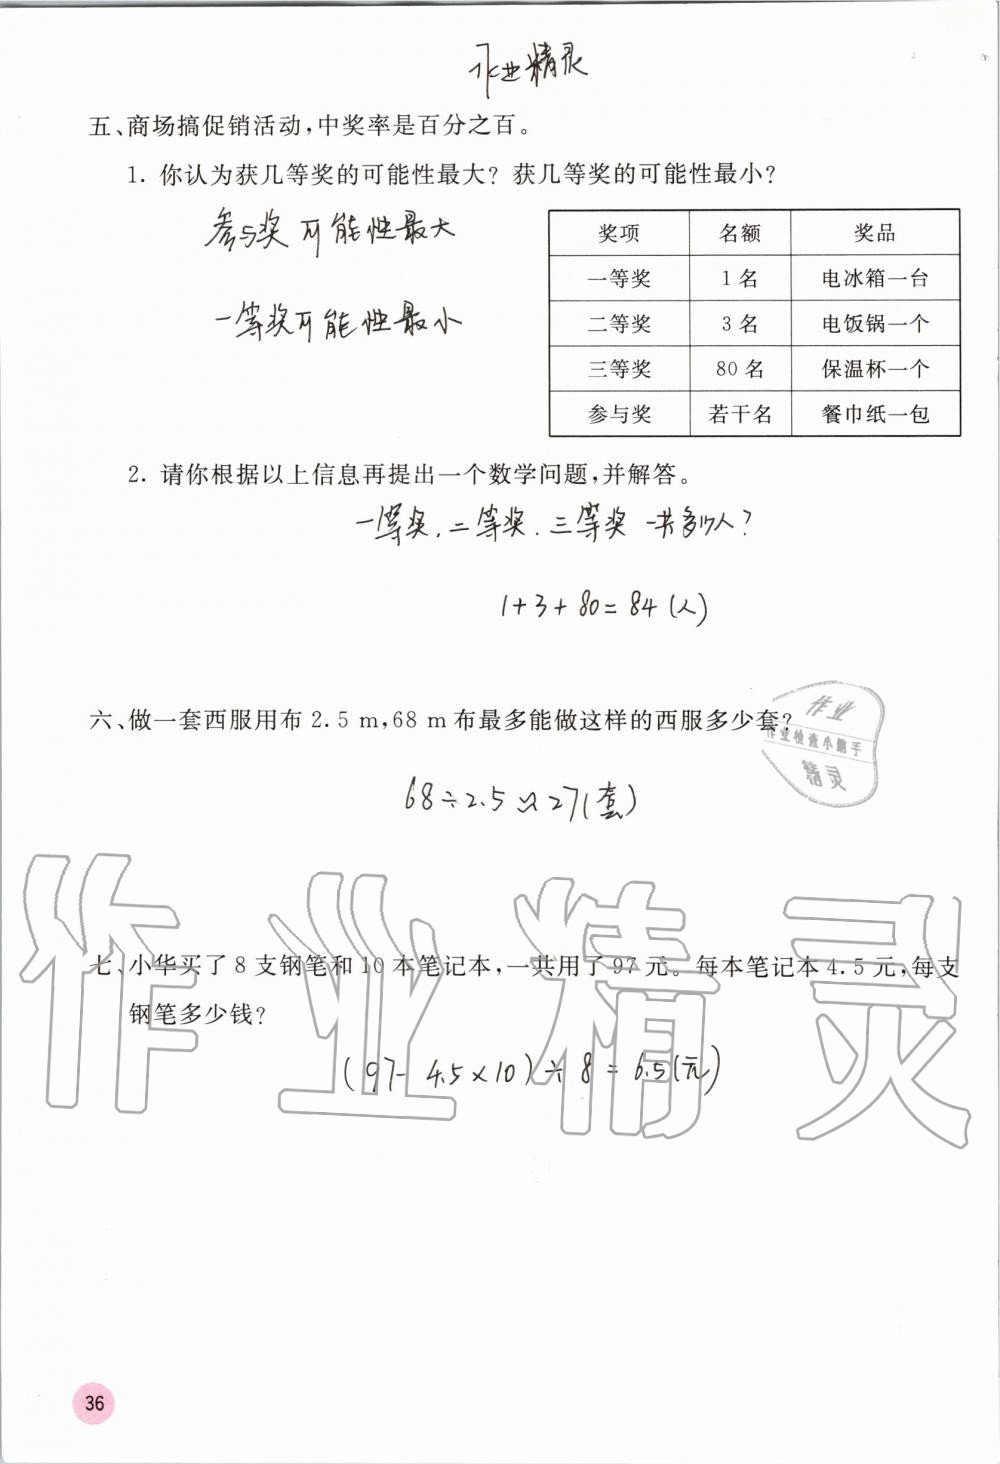 作业精灵
五、商场搞促销活动,中奖率是百分之百。
1. 你认为获几等奖的可能性最大? 获几等奖的可能性最小?
参与奖可能性最大
一等奖可能性最小
奖项 名额 奖品
一等奖 1名 电冰箱一台
二等奖 3名 电饭锅一个
三等奖 80名 保温杯一个
参与奖 若干名 餐巾纸一包
2. 请你根据以上信息再提出一个数学问题,并解答。
一等奖.二等奖.三等奖一共多少人?
1+3+80=84(人)
六、做一套西服用布2.5 m,68 m布最多能做这样的西服多少套?
作业
作业检查小助手
精灵
68÷2.5≈27(套)
作业精灵
七、小华买了8支钢笔和10本笔记本,一共用了97元。每本笔记本4.5元,每支
钢笔多少钱?
(97-4.5×10)÷8=6.5(元)
36